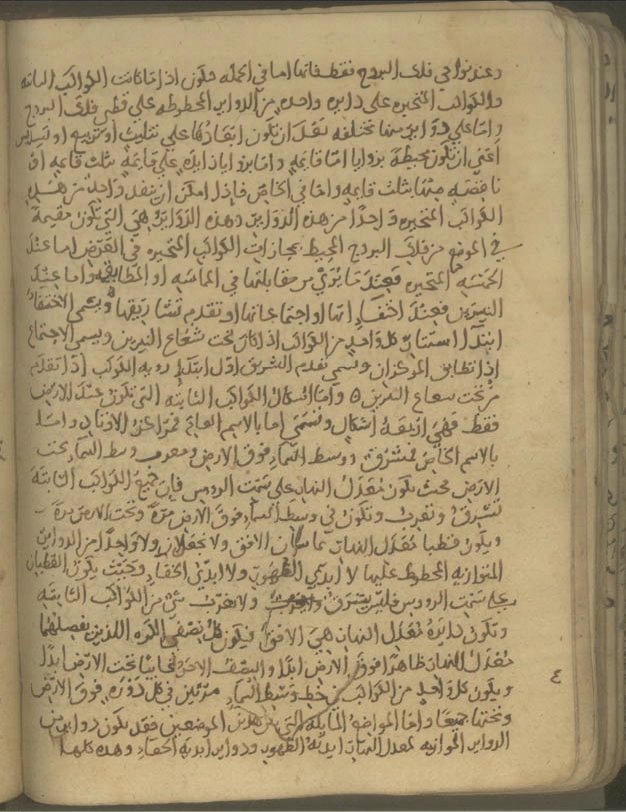 وعند نواحي فلك البروج فقط فانها اما في الجمله فتكون اذا ما كانت الكواكب الثابته
والكواكب المتحيره على دايره واحده من الدواير المخطوطه على قطبي فلك البروج
واما على دواير منها مختلفه بعد ان تكون ابعادها على تثليث او تربيع او تسديس
اعني ان تكون محيطة بزوايا اما قايمه واما بزوايا زايده على قايمه بثلث قايمه او
ناقصه عنها بثلث قايمه واما في الخاص فاذا امكن ان ينفد واحد من هذه
الكواكب المتحيره واحدا من هذه الدواير وهذه الدواير هي التي تكون مقيمة
في الموضع من فلك البروج المحيط بمجازات الكواكب المتحيره في العرض اما عند
الخمسه المتحيره فعند ما يُرى من مقابلتها في المماسه او المطابقه واما عند
النيرين فعند اختفاءاتها او اجتماعاتها او تقدم تشاريقها ويسمى الاختفاء
ابتدا استتار كل واحد من الكواكب اذا كان تحت شعاع النيرين ويسمى الاجتماع
اذا تطابق المركزان ويسمى تقدم التشريق اول ابتدا رويه الكوكب اذا تقدم
من تحت شعاع النيرين ٥ واما اشكال الكواكب الثابته التي تكون عند الارض
فقط فهي اربعة اشكال وتسمى اما بالاسم العام فمراكز الاوتاد واما
بالاسم الخاص فمشرق ووسط السماء فوق الارض ومغرب ووسط السماء تحت
الارض فحيث يكون معدل النهار على سمت الرووس فان جميع الكواكب الثابتة
تشرق وتغرب وتكون في وسط السماء فوق الارض مرة وتحت الارض مرة
ويكون قطبا معدل النهار يماسان الافق ولا يجعلان ولا واحدا من الدواير
المتوازيه المخطوط عليهما لا ابدي الظهور ولا ابدي الخفاء وحيث يكون القطبان
على سمت الرووس فليس يشرق ولا يغرب شي من الكواكب الثابته
وتكون دايرة معدل النهار هي الافق فيكون كل نصفي الكره اللذين يفصلهما
معدل النهار ظاهرا فوق الارض ابدا والنصف الاخر خافيا تحت الارض ابدا
ويكون كل واحد من الكواكب في خط وسط السماء مرتين في كل دوره فوق الارض
وتحتها جميعا واما المواضع المايله التي بين هذين الموضعين فقد يكون دواير من
الدواير الموازيه لمعدل النهار ابدية الظهور ودواير ابدية الخفاء وهذه كلها
٤